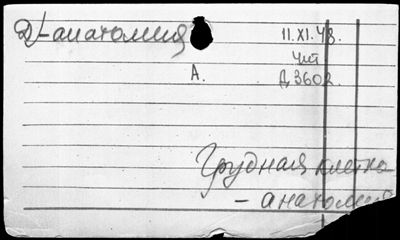 D-анатомия
11.XI.43.
Чит
A.
Д 3602
Грудная клетка
- анатомия